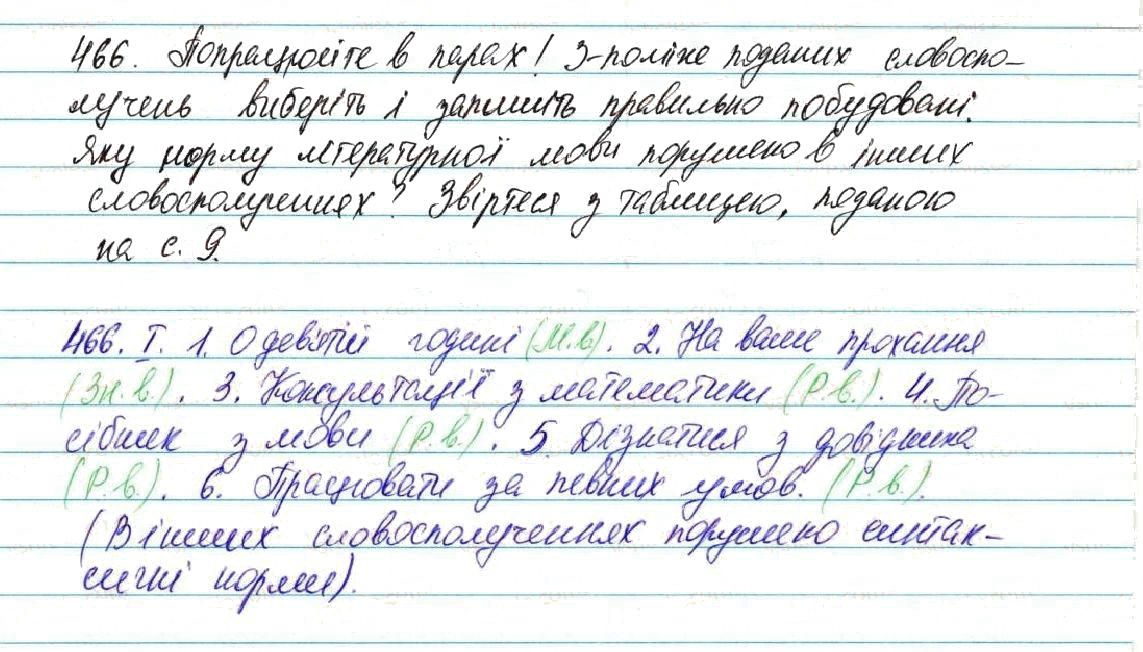 466. Попрацюйте в парах! З-поміж поданих словоспо-
лучень виберіть і запишіть правильно побудовані.
Яку норму літературної мови порушено в інших
словосполученнях? Звіртеся з таблицею, поданою
на с. 9.
466. I. 1. О дев'ятій годині (М.в.). 2. На ваше прохання
(Зн.в.). 3. Консультації з математики (Р.в.). 4. По-
сібник з мови (Р.в.). 5. Дізнатися з довідника
(Р.в.). 6. Працювати за певних умов. (Р.в.).
(В інших словосполученнях порушено синтак-
сичні норми).